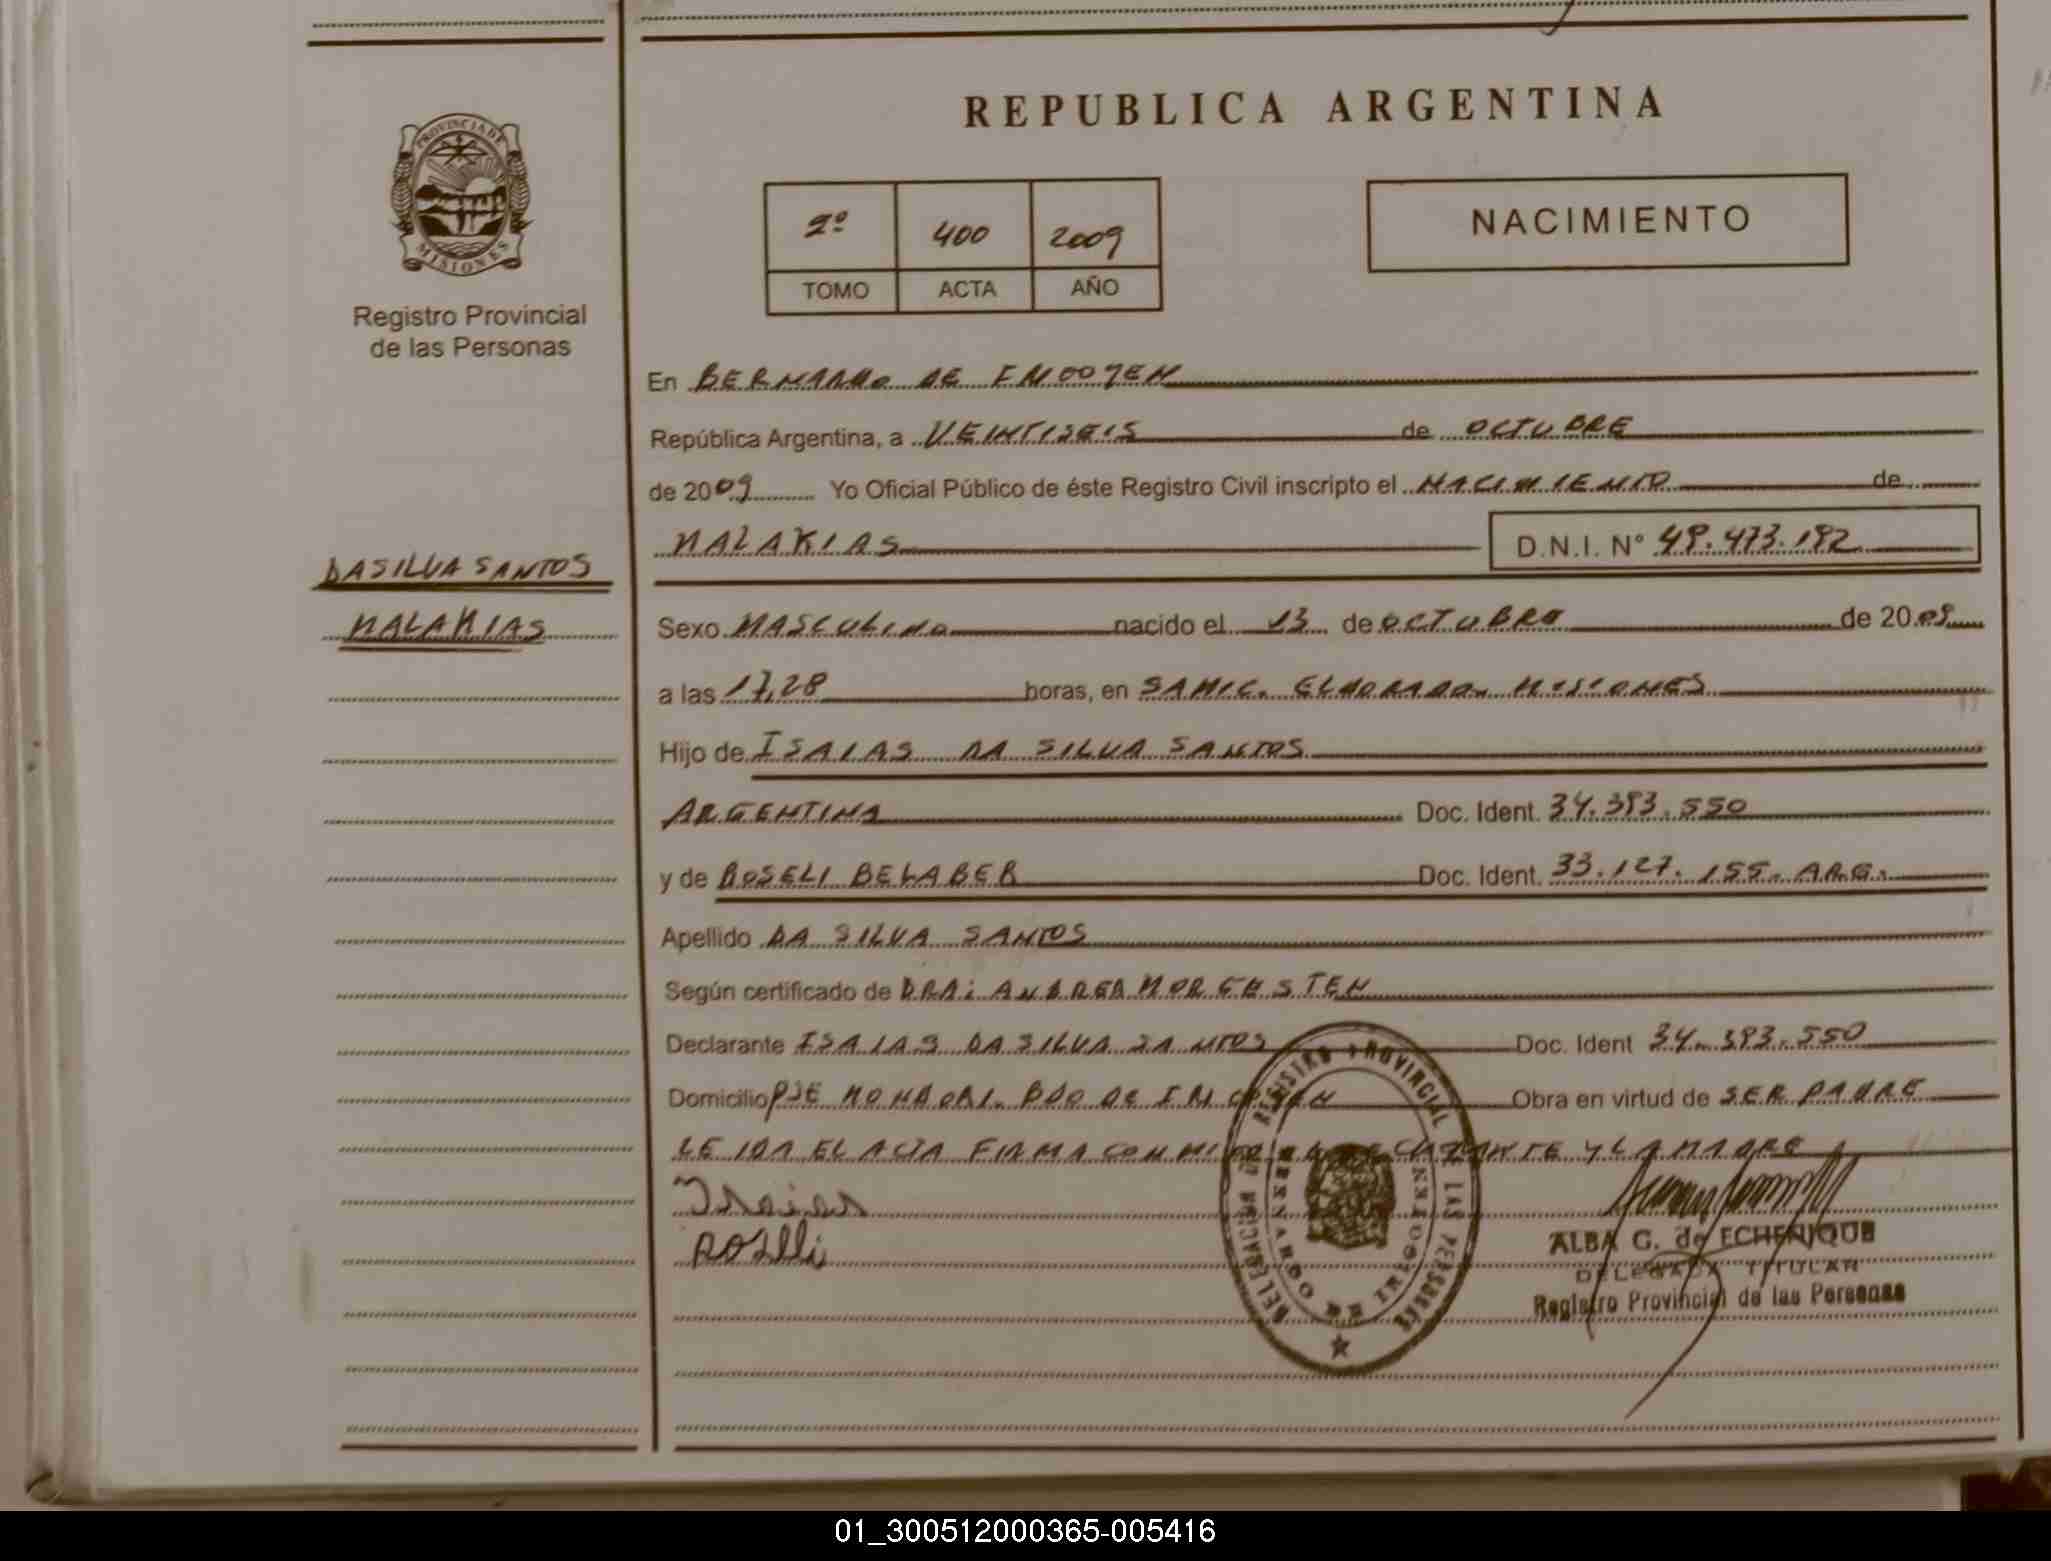 REPUBLICA ARGENTINA
PROVINCIA DE
MISIONES
Registro Provincial
de las Personas
2º 400 2009
TOMO ACTA AÑO
NACIMIENTO
En BERNARDO DE IRIGOYEN
República Argentina, a VEINTISEIS de OCTUBRE
de 2009 Yo Oficial Público de éste Registro Civil inscripto el NACIMIENTO de
MALAKIAS D.N.I. N° 49.473.192
DASILVA SANTOS
MALAKIAS
Sexo MASCULINO nacido el 13 de OCTUBRE de 2009
a las 17,28 horas, en SAMIC. ELDORADO. MISIONES
Hijo de ISAIAS DA SILVA SANTOS
ARGENTINA Doc. Ident. 34.393.550
y de ROSELI BELABER Doc. Ident. 33.127.155. ARG.
Apellido DA SILVA SANTOS
Según certificado de DRA: ANDREA MORGESTEN
Declarante ISAIAS DA SILVA SANTOS Doc. Ident 34.393.550
Domicilio PJE MONDORI. BDO DE IRIGOYEN Obra en virtud de SER PADRE
LEIDA EL ACTA FIRMA CONMIGO EL DECLARANTE Y LA MADRE
Isaias
Roselli
DELEGACION DE REGISTRO PROVINCIAL DE LAS PERSONAS
BERNARDO DE IRIGOYEN
ALBA G. de ECHENIQUE
DELEGADA TITULAR
Registro Provincial de las Personas
01_300512000365-005416